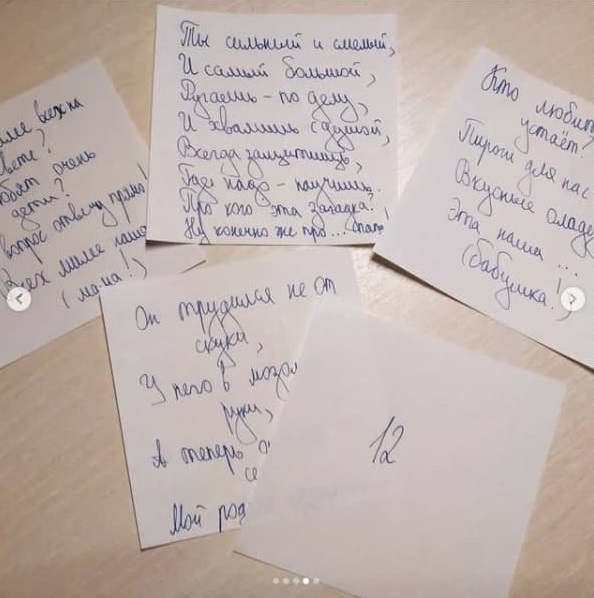 милее всех на
свете?
любят очень
дети?
вопрос отвечу прямо!
Всех милее наша
(мама!)
Ты сильный и смелый,
И самый большой,
Ругаешь - по делу,
И хвалишь с душой,
Всегда защитишь,
Где надо - научишь.
Про кого эта загадка?
Ну конечно же про... папу!
Кто любит
устаёт?
Пироги для нас
Вкусные
Эта наша ...
(бабушка!)
Он трудился не от
скуки,
У него в
руки,
А теперь
Мой
12